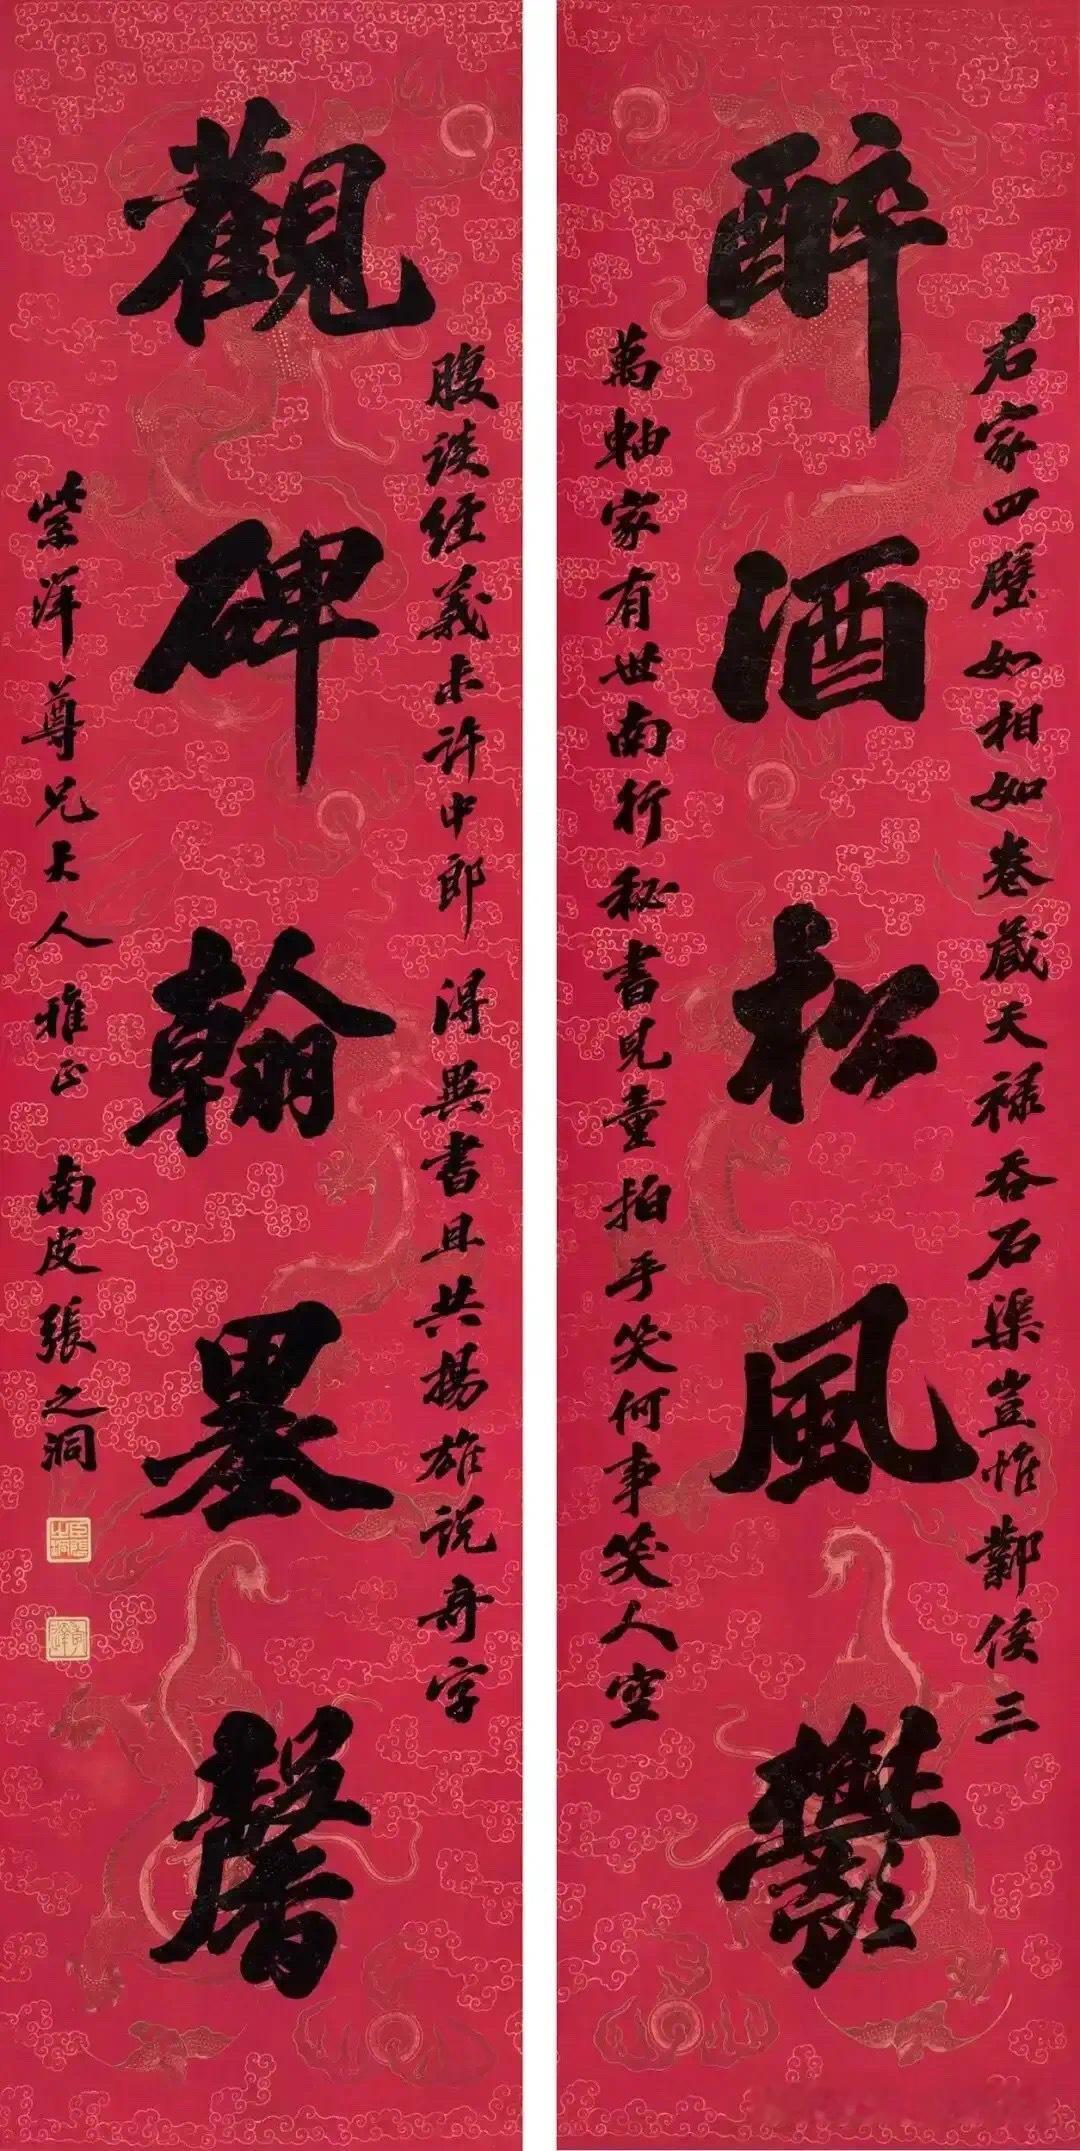 君家四壁如相如卷藏天禄吞石渠豈惟鄴侯三
醉酒松風鬱
萬軸家有世南行秘書兒童拍手笑何事笑人空
腹談經義未許中郎得異書且共揚雄說奇字
觀碑翰墨馨
紫洋尊兄大人雅正 南皮張之洞